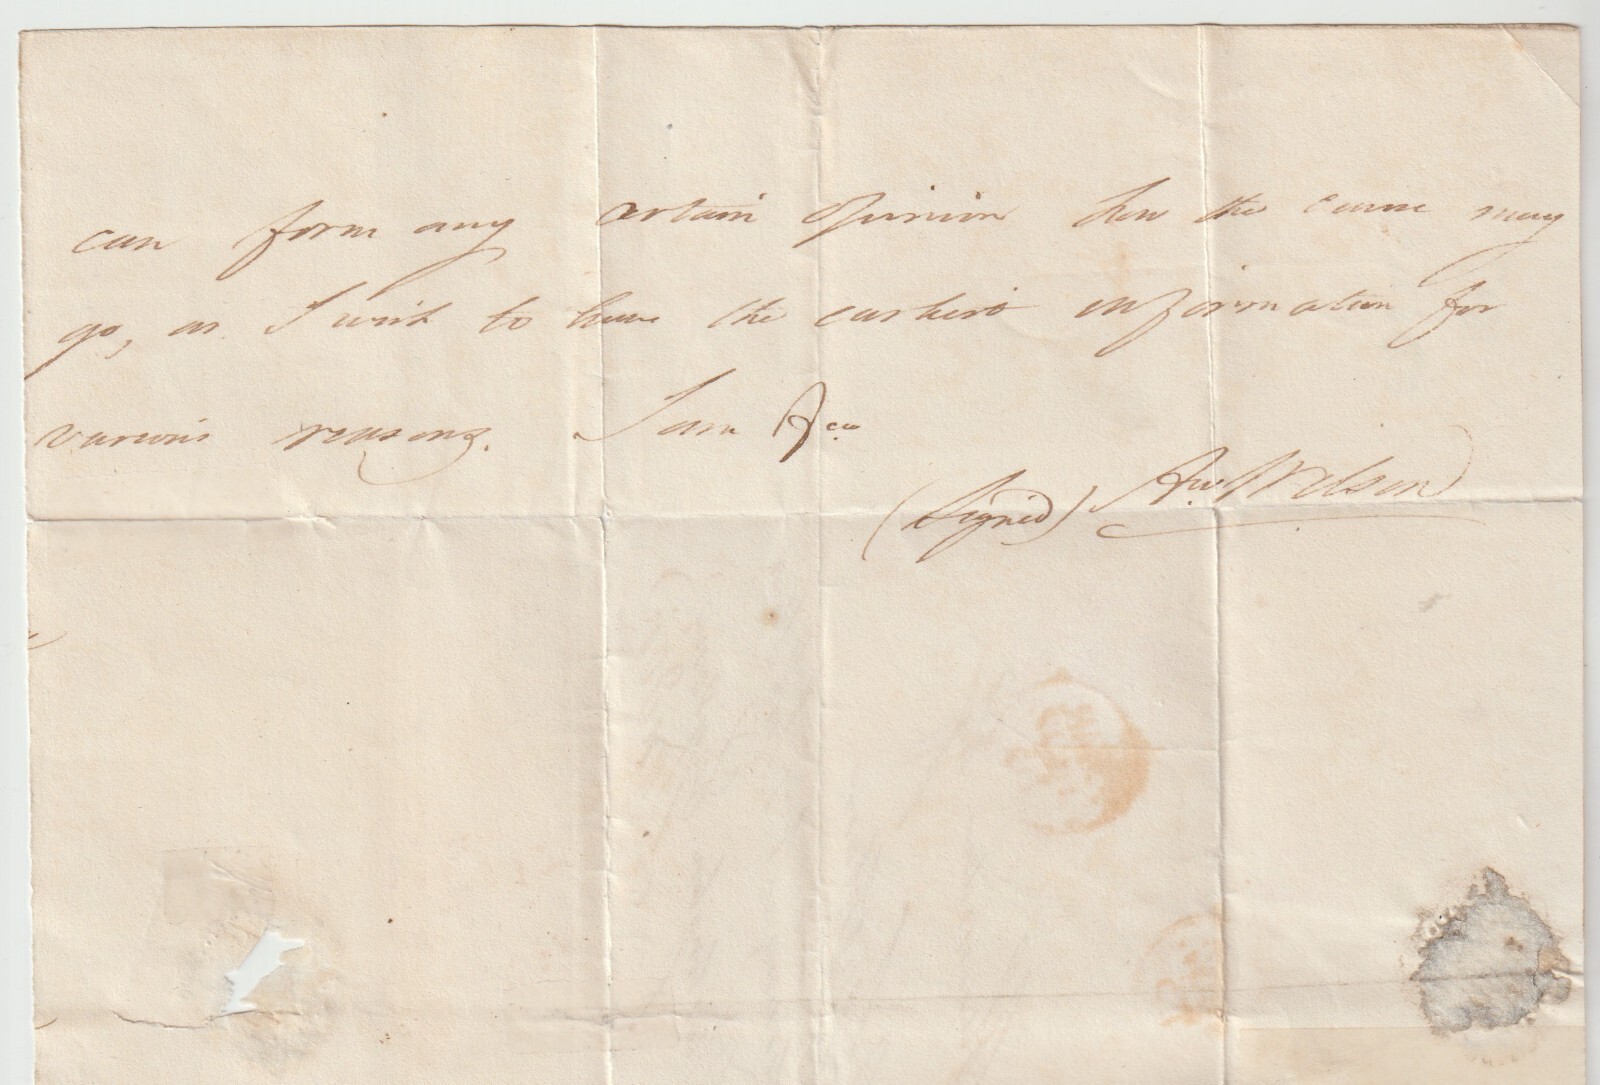 can form any certain opinion how the cause may
go, as I wish to have the earliest information for
various reasons. I am &ca
(Signed) Aw Wilson